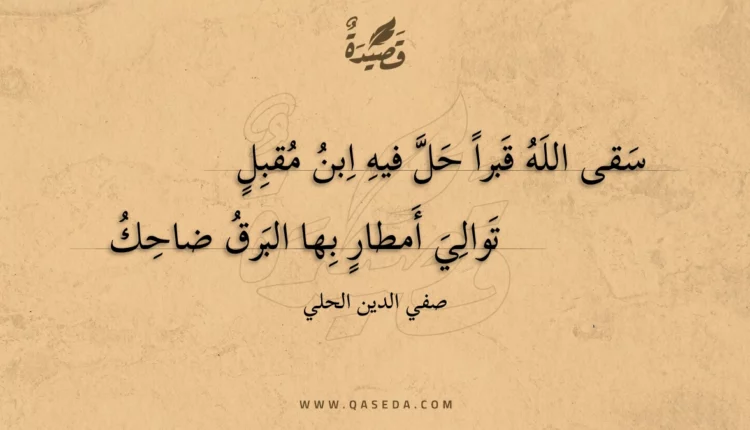 قَصِيْدَةٌ
سَقى اللَهُ قَبراً حَلَّ فيهِ اِبنُ مُقبِلٍ
تَوالِيَ أَمطارٍ بِها البَرقُ ضاحِكُ
صفي الدين الحلي
WWW.QASEDA.COM